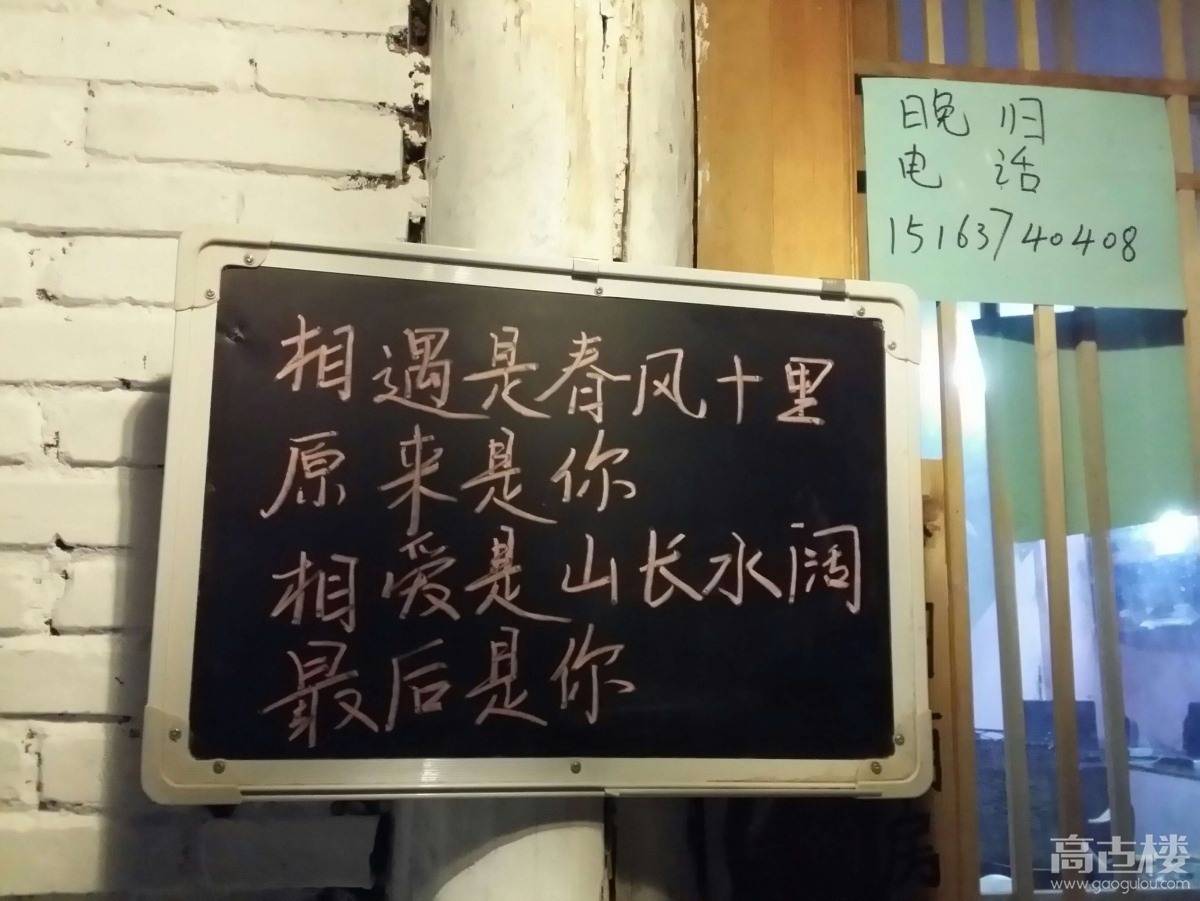 晚归
电话
15163740408
相遇是春风十里
原来是你
相爱是山长水阔
最后是你
高古楼
www.gaogulou.com